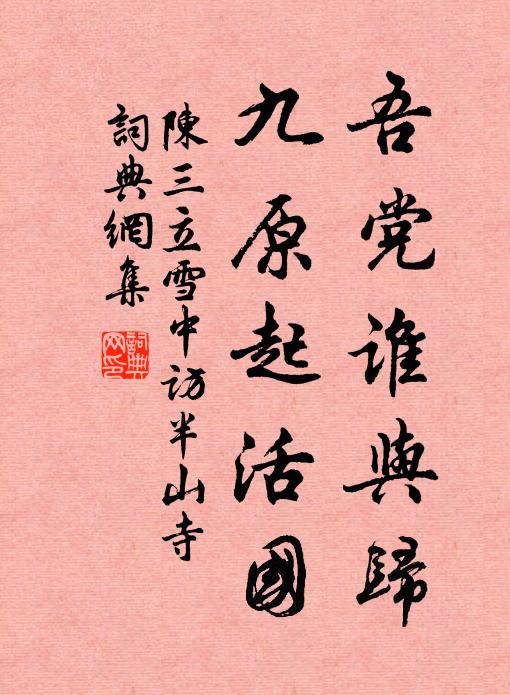 吾党誰與歸
九原起活國
陳三立雪中访半山寺
詞典網集
詞典
网印